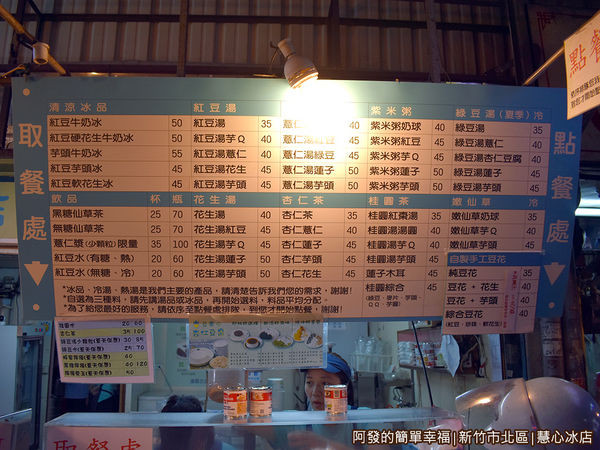 取餐處
點餐處
點餐
清涼冰品
紅豆牛奶冰 50
紅豆硬花生牛奶冰 50
芋頭牛奶冰 55
紅豆芋頭冰 50
紅豆軟花生冰 45
紅豆湯
紅豆湯 35
紅豆湯芋Q 40
紅豆湯薏仁 40
紅豆湯花生 45
紅豆湯芋頭 45
薏仁 40
薏仁湯紅豆 40
薏仁湯綠豆 40
薏仁湯蓮子 50
薏仁湯芋頭 50
紫米粥
紫米粥奶球 40
紫米粥紅豆 45
紫米粥芋Q 45
紫米粥蓮子 50
紫米粥芋頭 50
綠豆湯(夏季)冷
綠豆湯 35
綠豆湯薏仁 40
綠豆湯杏仁豆腐 40
綠豆湯蓮子 45
綠豆湯芋頭 45
飲品 杯 瓶
黑糖仙草茶 25 70
無糖仙草茶 25 70
薏仁漿(少顆粒)限量 35 100
紅豆水(有糖、熱) 20 60
紅豆水(無糖、冷) 20 60
花生湯
花生湯 40
花生湯紅豆 45
花生湯芋Q 45
花生湯蓮子 50
花生湯芋頭 50
杏仁茶
杏仁茶 35
杏仁薏仁 40
杏仁蓮子 45
杏仁芋頭 45
杏仁花生 45
桂圓茶
桂圓紅棗湯 35
桂圓湯湯圓 40
桂圓湯芋Q 40
蓮子木耳 45
桂圓綜合 45
(綠豆、麥片、芋頭
QQ、芋圓)
嫩仙草
嫩仙草奶球 35
嫩仙草薏仁 40
嫩仙草芋頭 45
自製手工豆花
純豆花 35
豆花+花生
豆花+芋頭
綜合豆花
*冰品、冷湯、熱湯是我們主要的產品,請清楚告訴我們您的需求,謝謝!
*自選為三種料,請先講湯品或冰品,再開始選料,料品平均分配。
*為了給您最好的服務,請依序至點餐處排隊,到您才開始點餐,謝謝!
取餐處
阿發的簡單幸福|新竹市北區|慧心冰店